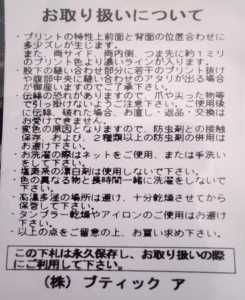 お取り扱いについて
・プリントの特性上前面と背面の位置合わせに
多少ズレが生じます。
また、両サイド、両内側、つま先に約1ミリ
のプリント色より濃いラインが入ります。
・股下の縫い合わせ部分に若干のプリント抜け
や腹部中央に縫い合わせのアタリが出る場合
が御座いますのでご了承下さい。
・伝線の恐れがありますので、爪や尖った物等
で引っ掛けないようご注意下さい。ご使用後
に伝線、破れた場合、お直し・返品・交換は
お受けできません。
・変色の原因となりますので、防虫剤との接触
保存、および、2種類以上の防虫剤の併用は
お避け下さい。
・お洗濯の際はネットをご使用、または手洗い
をして下さい。
・塩素系の漂白剤は使用しないで下さい。
・色の異なる物と長時間一緒に洗濯をしないで
下さい。
・高温多湿の場所は避け、十分乾燥させてから
保管して下さい。
・タンブラー乾燥やアイロンのご使用はお避け
下さい。
・以上の点をご留意の上、お買い求め下さい。
この下札は永久保存し、お取り扱いの際
にご利用して下さい。
(株) ブティック ア